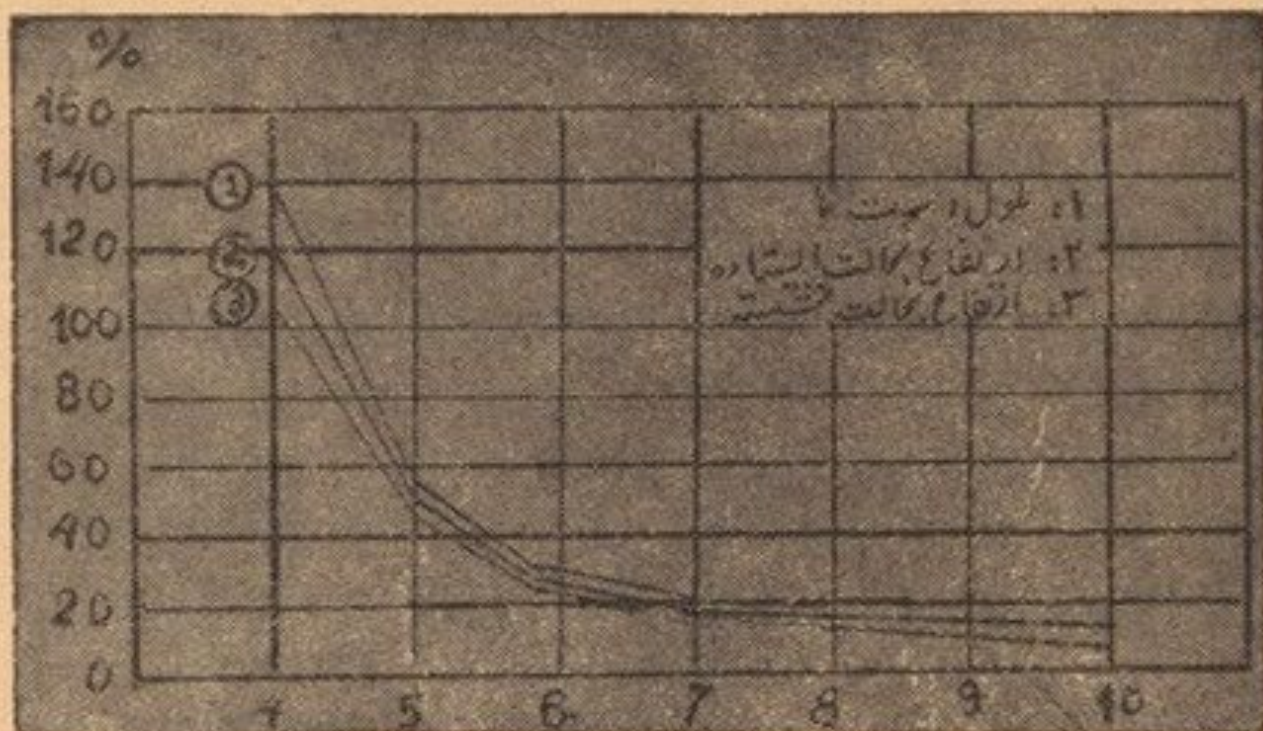 %
160
140 1
120 2
100 3
80
60
40
20
0
۱: طول
۲: ارتفاع بحالت ایستاده
۳: ارتفاع بحالت نشسته
4 5 6 7 8 9 10